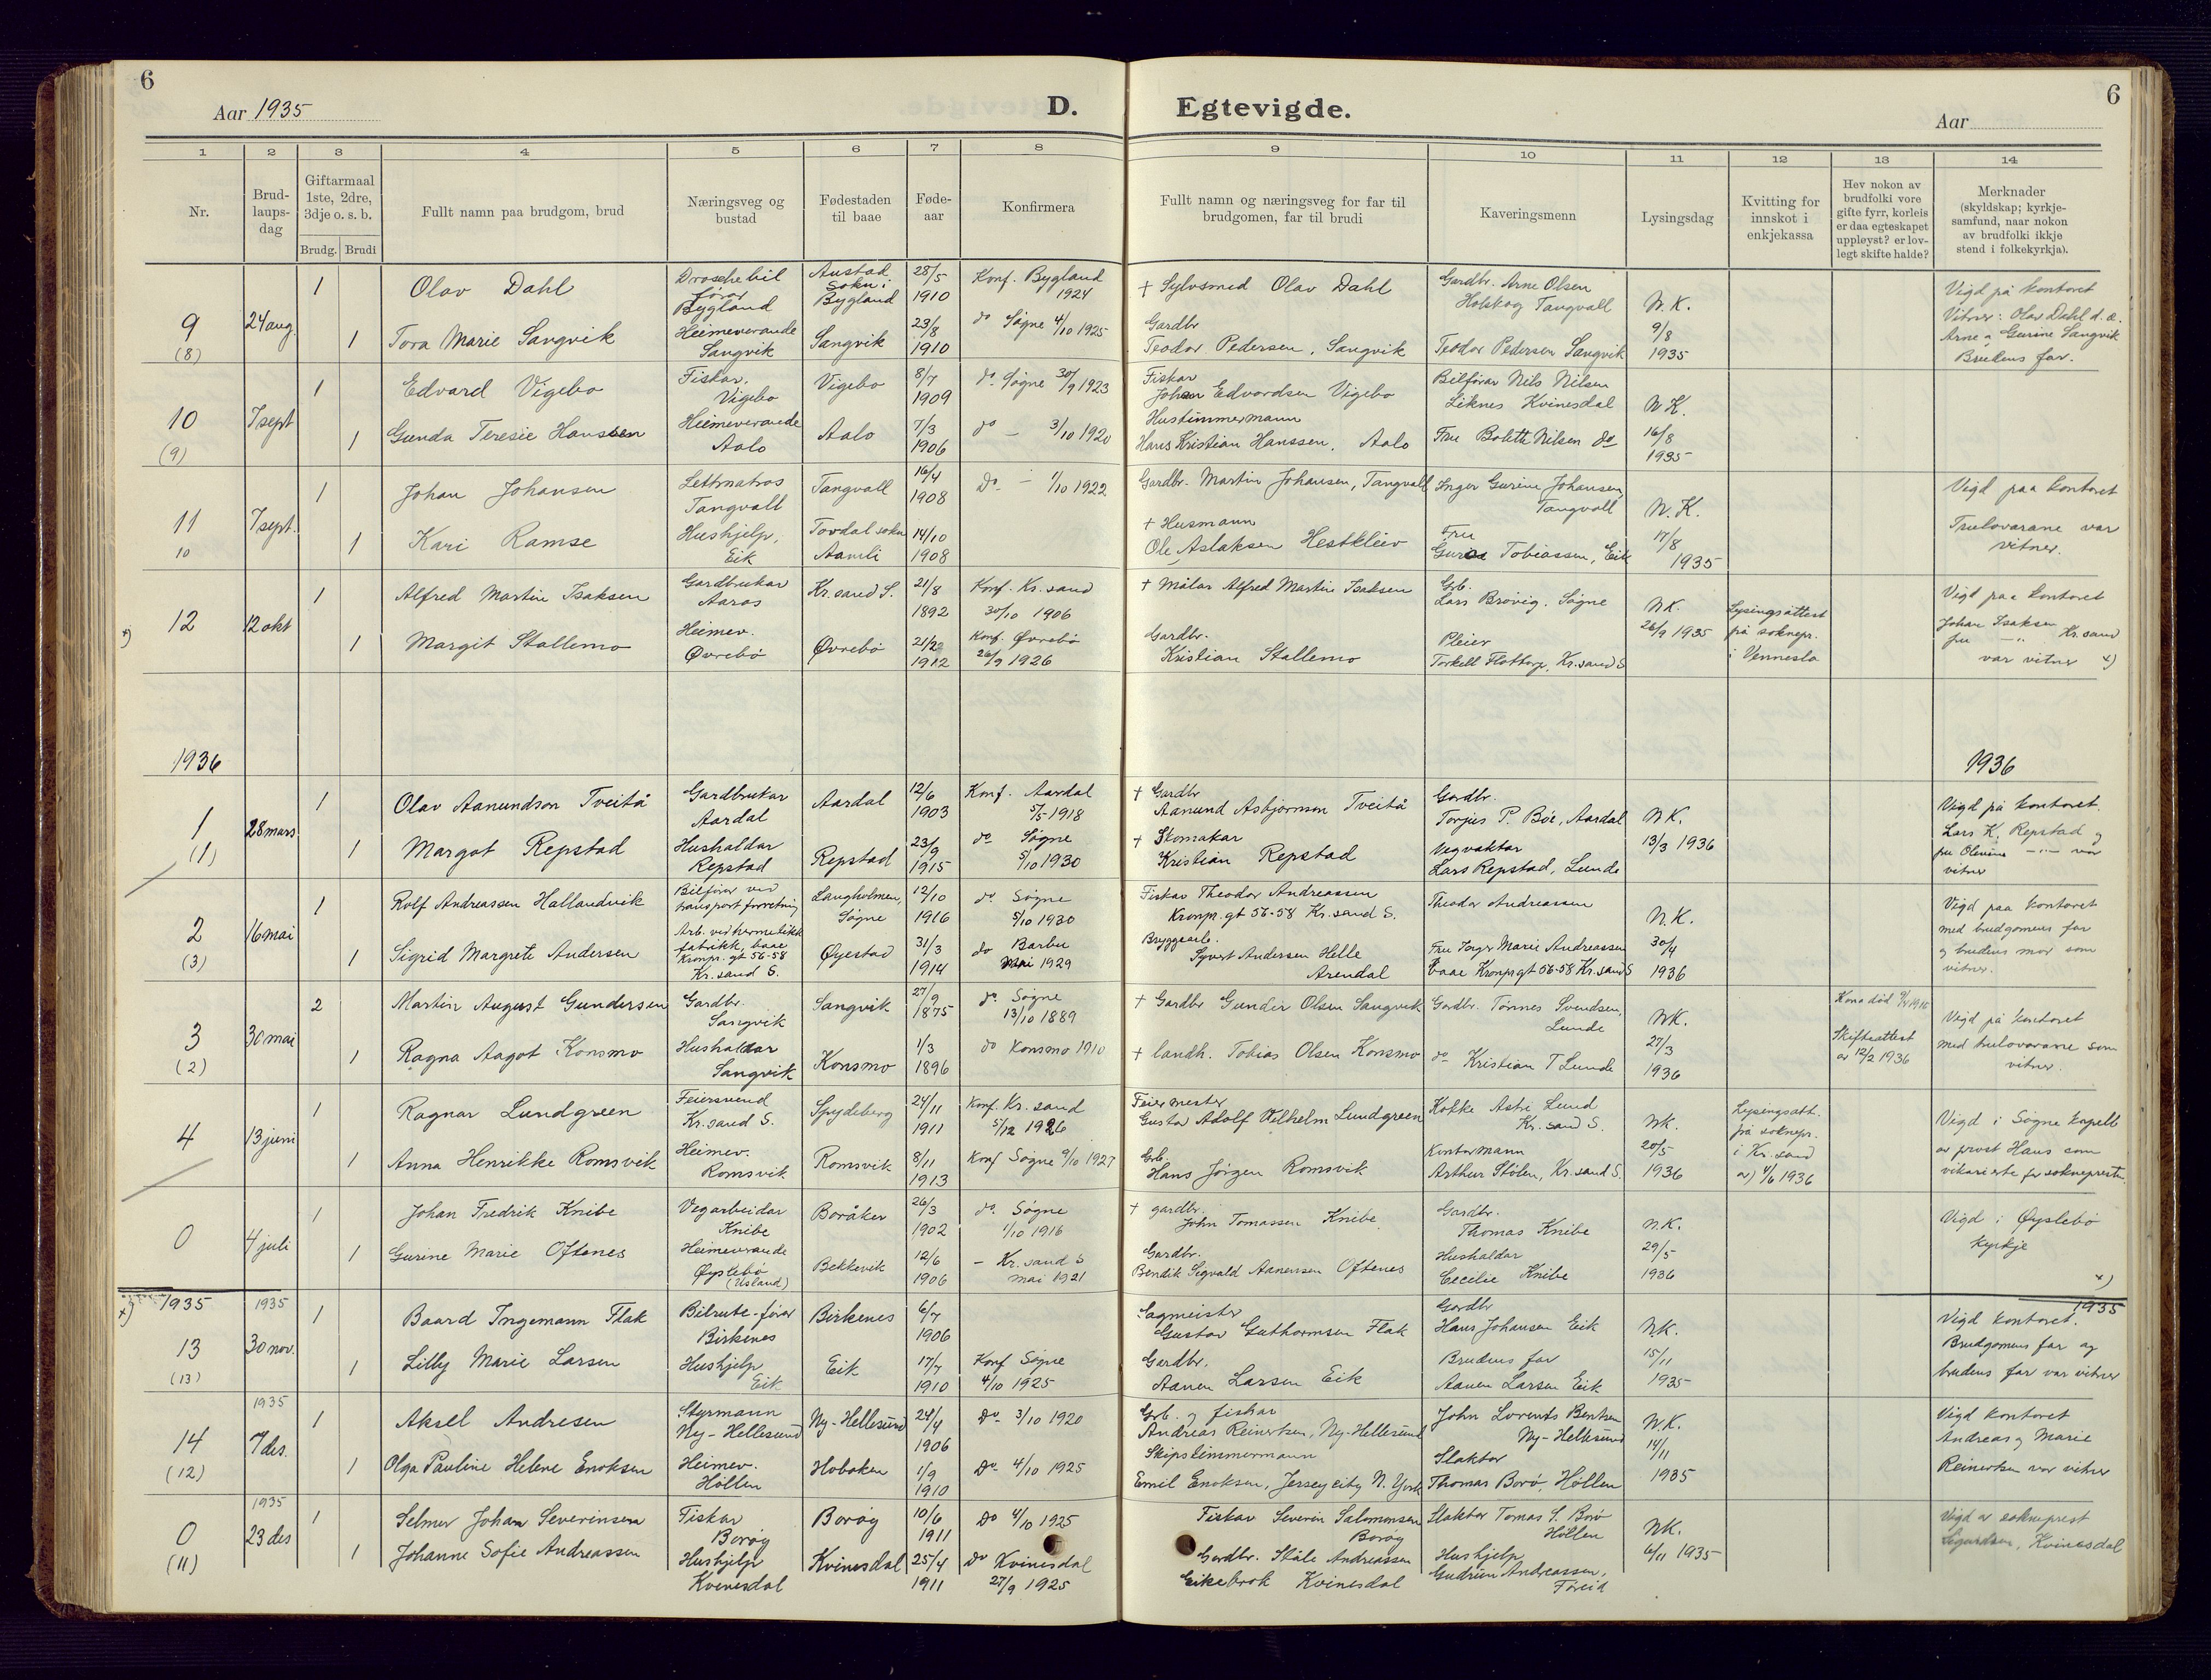 6
Aar 1935
D.
Egtevigde.
Aar
6
1 2 3 4 5 6 7 8 9 10 11 12 13 14
Nr.
Brud-
laups-
dag
Giftarmaal
1ste, 2dre,
3dje o. s. b.
Brudg. Brudi
Fullt namn paa brudgom, brud
Næringsveg og
bustad
Fødestaden
til baae
Føde-
aar
Konfirmera
Fullt namn og næringsveg for far til
brudgomen, far til brudi
Kaveringsmenn
Lysingsdag
Kvitting for
innskot i
enkjekassa
Hev nokon av
brudfolki vore
gifte fyrr, korleis
er daa egteskapet
uppløyst? er lov-
legt skifte halde?
Merknader
(skyldskap; kyrkje-
samfund, naar nokon
av brudfolki ikkje
stend i folkekyrkja).
9
(8)
24 aug.
1
Olav Dahl
Droschebil
førar
Bygland
Austad
sokn i
Bygland
28/5
1910
Konf. Bygland
1924
† Sylvsmed Olav Dahl
Gardbr. Arne Olsen
Holskog Tangvall
N.K.
9/8
1935
Vigd på kontoret
Vitner: Olav Dahl d. e.
Arne og Gurine Sangvik
Brudens far.
1
Tora Marie Sangvik
Heimeverande
Sangvik
Sangvik
23/8
1910
do Søgne 4/10 1925
Gardbr
Teodor Pedersen, Sangvik
Teodor Pedersen Sangvik
10
(9)
7 sept
1
Edvard Vigebo
Fiskar,
Vigebo
Vigebo
8/7
1909
do Søgne 30/9 1923
Fiskar
Johan Edvardsen Vigebo
Bilførar Nils Nilsen
Liknes Kvinesdal
N.K.
16/8
1935
1
Gunda Teresie Hanssen
Heimeverande
Aalo
Aalo
7/3
1906
do — 3/10 1920
Hustimmermann
Hans Kristian Hanssen, Aalo
Fru Bolette Nilsen do
11
10
7 sept.
1
Johan Johansen
Lettmatros
Tangvall
Tangvall
16/4
1908
Do — 1/10 1922
Gardbr. Martin Johansen, Tangvall
Inger Gurine Johansen,
Tangvall
N.K.
17/8
1935
Vigd paa kontoret
Trulovarane var
vitner.
1
Kari Ramse
Hushjelp,
Eik
Tovdal sokn
Aamli
14/10
1908
† Husmann
Ole Aslaksen Hestkleiv
Fru
Gurine Tobiassen, Eik
*)
12
12 okt
1
Alfred Martin Isaksen
Gardbrukar
Aaros
Kr.sand S.
21/8
1892
Konf. Kr. sand
30/10 1906
† Målar Alfred Martin Isaksen
Grb.
Lars Brøvig. Søgne
N.K.
26/9 1935
Lysingsattest
på soknepr.
i Vennesla
Vigd paa kontoret
Johan Isaksen
fru — " — Kr. sand
var vitner *)
1
Margit Stallemo
Heimev.
Øvrebø
Øvrebø
1912
Konf. Øvrebø
26/9 1926
Gardbr.
Kristian Stallemo
Pleier
Torkell Flottorp, Kr.sand S
1936
1936
1
(1)
28 mars
1
Olav Aanundson Tveitå
Gardbrukar
Aardal
Aardal
12/6
1903
Konf. Aardal
5/5 1918
† Gardbr
Aanund Asbjørnson Tveitå
Gardbr.
Torjus P. Bøe, Aardal
N.K.
13/3 1936
Vigd på kontoret.
Lars K. Repstad og
fru Olevine — " — var
vitner
1
Margot Repstad
Hushaldar
Repstad
Repstad
23/9
1915
do Søgne
5/10 1930
† Skomakar
Kristian Repstad
Vegvaktar
Lars Repstad, Lunde
2
(3)
16 mai
1
Rolf Andreassen Hallandvik
Bilførar ved
transport forretning
Langholmen,
Søgne
12/10
1916
do Søgne
5/10 1930
Fiskar Theodor Andreassen
Kronp. gt 56-58 Kr.sand S.
Theodor Andreassen
N.K.
30/4
1936
Vigd paa kontoret
med brudgomens far
og brudens mor som
vitner.
1
Sigrid Margrete Andersen
Arb. ved hermetikk
fabrikk, baae
Kronpr. gt 56-58
Kr. sand S.
Øyestad
31/3
1914
do Barbu
Mai 1929
Bryggearb.
Syvert Andersen Helle
Arendal
Fru Inger Marie Andreassen
baae Kronprgt 56-58 Kr.sand S
3
(2)
30 mai
2
Martin August Gundersen
Gardbr.
Sangvik
Sangvik
27/9
1875
do Søgne
13/10 1889
† Gardbr Gunder Olsen Sangvik
Gardbr. Tønnes Svendsen,
Lunde
N.K.
27/3
1936
Kona død 1915
Skifteattest
av 12/2 1936
Vigd på kontoret
med trulovarane som
vitner.
1
Ragna Aagot Konsmo
Hushaldar
Sangvik
Konsmo
1/3
1896
do Konsmo 1910
† landh. Tobias Olsen Konsmo
do Kristian T Lunde
4
13 juni
1
Ragnar Lundgreen
Feiersvend
Kr.sand S.
Spydeberg
24/11
1911
Konf. Kr. sand
5/12 1926
Feiermester
Gustav Adolf Vilhelm Lundgreen
Kokke Astri Lund
Kr. sand S.
NK.
20/5
1936
Lysingsatt.
frå soknepr.
i Kr. sand
av 4/6 1936
Vigd i Søgne kapell
av prost Haus som
vikarierte for soknepresten.
1
Anna Henrikke Romsvik
Heimev.
Romsvik
Romsvik
8/11
1913
Konf Søgne 9/10 1927
Grb.
Hans Jørgen Romsvik
Kontormann
Arthur Stølen, Kr.sand S.
0
4 juli
1
Johan Fredrik Knibe
Vegarbeidar
Knibe
Boråker
26/3
1902
do Søgne
1/10 1916
† gardbr.
John Tomassen Knibe
Gardbr.
Thomas Knibe
N.K.
29/5
1936
Vigd i Øyslebø
Kyrkje
1
Gurine Marie Oftenes
Heimeverande
Øyslebø
(Usland)
Bekkevik
12/6
1906
— Kr. sand S
mai 1921
Gardbr.
Bendik Sigvald Aanensen Oftenes
Hushaldar
Cecelie Knibe
*)
*) 1935
1935
1935
13
(13)
30 nov.
1
Baard Ingemann Flak
Bilrute-fører
Birkenes
Birkenes
6/7
1906
Sagmeister
Gustav Guthormsen Flak
Gardbr
Hans Johansen Eik
NK.
15/11
1935
Vigd kontoret.
Brudgomens far og
brudens far var vitner
1
Lilly Marie Larsen
Hushjelp
Eik
Eik
17/7
1910
Konf Søgne
4/10 1925
Gardbr.
Aanen Larsen Eik
Brudens far
Aanen Larsen Eik
1935
14
(12)
7 des.
1
Aksel Andresen
Styrmann
Ny-Hellesund
Ny-Hellesund
24/4
1906
Do 3/10 1920
Grb. og fiskar
Andreas Reinertsen, Ny-Hellesund
John Lorents Bentsen
Ny-Hellesund
N.K.
14/11
1935
Vigd kontoret
Andreas og Marie
Reinertsen var vitner
1
Olga Pauline Helene Enoksen
Heimev.
Höllen
Hoboken
1/9
1910
Do 4/10 1925
Skipstimmermann
Emil Enoksen, Jersey city N. York
Slaktar
Thomas Borø, Höllen
1935
0
(11)
23 des
1
Selmer Johan Severinsen
Fiskar
Borøy
Borøy
10/6
1911
Do 4/10 1925
Fiskar Severin Salomonsen
Borøy
Slaktar Tomas S. Borø
Höllen
NK.
6/11 1935
Vigd av sokneprest
Sigurdsen, Kvinesdal
1
Johanne Sofie Andreassen
Hushjelp
Kvinesdal
Kvinesdal
25/4
1911
Do Kvinesdal
27/9 1925
Gardbr. Ståle Andreassen
Eikebrok Kvinesdal
Hushjelp
Gudrun Andreassen,